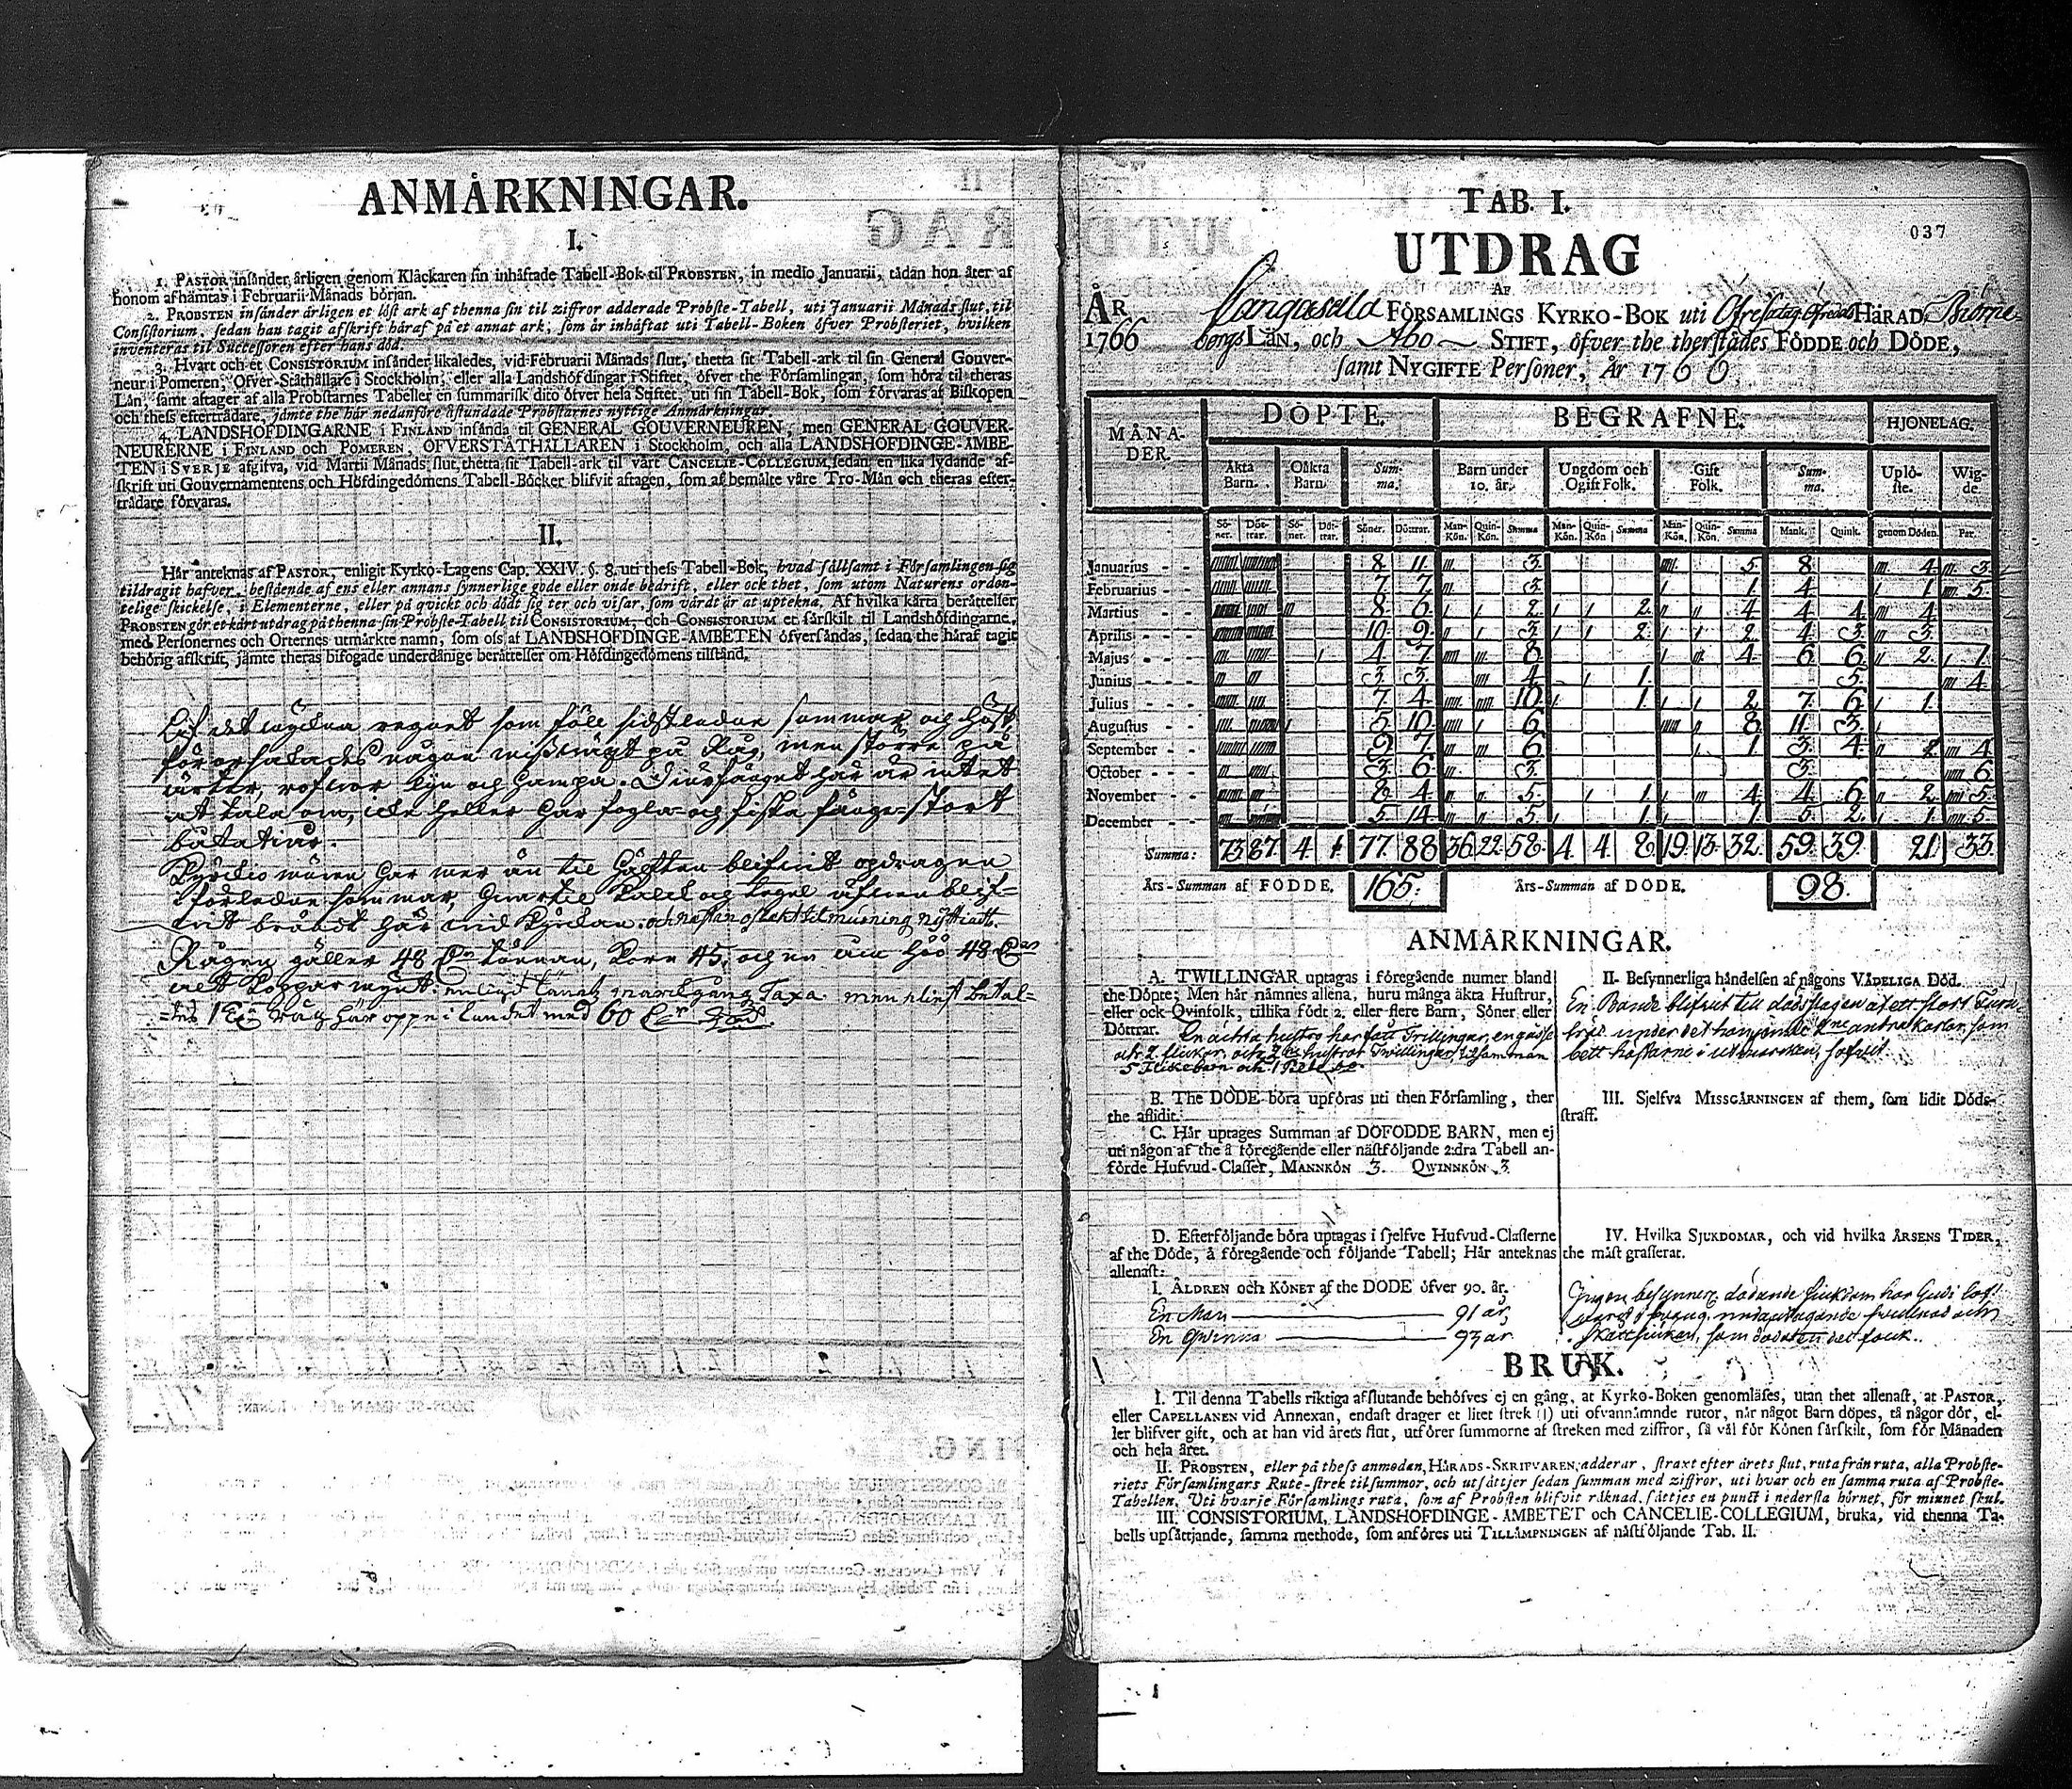 ANMÄRKNINGAR.
I.
1. PASTOR insänder årligen genom Klåckaren sin inhäftade Tabell-Bok til PROBSTEN, in medio Januarii, tädan hon åter af
honom afhämtas i Februarii Månads början.
2. PROBSTEN insänder årligen et löst ark af thenna sin til ziffror adderade Probste-Tabell, uti Januarii Månads slut, til
Consistorium, sedan han tagit afskrift häraf på et annat ark, som är inhäftat uti Tabell-Boken öfver Probsteriet, hvilken
inventeras til Successoren efter hans död.
3. Hvart och et CONSISTORIUM insänder likaledes, vid Februarii Månads slut, thetta sit Tabell-ark til sin General Gouver-
neur i Pomeren, Öfver-Ståthållare i Stockholm, eller alla Landshöfdingar i Stiftet, öfver the Församlingar, som höra til theras
Län, samt aftager af alla Probstarnes Tabeller en summarisk dito öfver hela Stiftet, uti sin Tabell-Bok, som förvaras af Biskopen
och thess efterträdare, jämte the här nedanföre åstundade Probstarnes nyttige Anmärkningar.
4. LANDSHÖFDINGARNE i FINLAND insända til GENERAL GOUVERNEUREN, men GENERAL GOUVER-
NEURERNE i FINLAND och POMEREN, ÖFVERSTÅTHÅLLAREN i Stockholm, och alla LANDSHÖFDINGE-ÄMBE-
TEN i SVERJE afgifva, vid Martii Månads slut, thetta sit Tabell-ark til vårt CANCELIE-COLLEGIUM, sedan en lika lydande af-
skrift uti Gouvernamentens och Höfdingedömens Tabell-Böcker blifvit aftagen, som af bemälte våre Tro-Män och theras efter-
trädare förvaras.
II.
Här anteknas af PASTOR, enligit Kyrko-Lagens Cap. XXIV. §. 8. uti thess Tabell-Bok, hvad sällsamt i Församlingen sig
tildragit hafver, bestående af ens eller annans synnerlige gode eller onde bedrift, eller ock thet, som utom Naturens orden-
telige skickelse, i Elementerne, eller på qvickt och dödt sig ter och visar, som värdt är at uptekna. Af hvilka korta berättelser
PROBSTEN gör et kort utdrag på thenna sin Probste-Tabell til CONSISTORIUM, och CONSISTORIUM et särskilt til Landshöfdingarne,
med Personernes och Orternes utmärkte namn, som oss af LANDSHÖFDINGE-ÄMBETEN öfversändas, sedan the häraf tagit
behörig afskrift, jämte theras bifogade underdånige berättelser om Höfdingedömens tilstånd.
Af det myckna regnet som föll sidstledne sommar och höst,
förorsakades någon missväxt på Råg, men större på
ärter, rofvor lin och hampa. Diurfänget här är intet
at tala om, icke heller har fogla- och fiska fänge stort
båtat
Kyrcko muren har mer än til hälften blifvit opdragen
i förledne sommar,
vit brändt här vid Kyrckan
Rågen gäller 48 tunnan, Korn 45, och en hö 48
alt koppar mynt. enligit Lands markgångs Taxa
råg här oppe i landet med 60
TAB. I.
037
UTDRAG
AF
ÅR Cangasella FÖRSAMLINGS KYRKO-BOK uti HÄRAD, Biörne-
1766 borgs LÄN, och Åbo STIFT, öfver the therstädes FÖDDE och DÖDE,
samt NYGIFTE Personer, År 1766
MÅNA-DER. DÖPTE. BEGRAFNE. HJONELAG.
Äkta Barn. Oäkta Barn. Summa. Barn under 10. år. Ungdom och Ogift Folk. Gift Folk. Summa. Uplöste. Wigde.
Söner. Döttrar. Söner. Döttrar. Söner. Döttrar. Man-Kön. Quin-Kön. Summa Man-Kön. Quin-Kön Summa Män-Kön. Quin-Kön. Summa Mank. Quink. genom Döden. Par.
Januarius 8 11 3. 5 8 4 3
Februarius 7. 7. 3. 1. 4. 1 5
Martius 8 6. 2. 2. 4 4 4. 4
Aprilis 10. 9. 3. 2. 2 4 3. 3
Majus 4 7 8 4 6 6 2. 1.
Junius 3. 3. 4. 1. 5. 4.
Julius 7 4. 10. 1. 2 7. 6 1.
Augustus 5 10. 6 8 11. 3.
September 9 7. 6 1 3. 4. 2 4
October 3. 6. 3. 3. 6.
November 8 4. 5. 1. 4 4. 6 2. 5.
December 5 14. 5. 1. 1. 5 2. 1. 5
Summa: 73 87. 4. 1 77. 88 36. 22 58. 4. 4. 8. 19. 13. 32. 59. 39. 21. 33
Års-Summan af FÖDDE. 165. Års-Summan af DÖDE. 98.
ANMÄRKNINGAR.
A. TWILLINGAR uptagas i föregående numer bland
the Döpte; Men här nämnes allena, huru många äkta Hustrur,
eller ock Qvinfolk, tillika födt 2, eller flere Barn, Söner eller
Döttrar. En ächta hustru har fått Trillingar, en gåsse
och 2 flickor, och 2 hustrur Twillingar, tilsamman
5 Flickebarn och 1
B. The DÖDE böra upföras uti then Församling, ther
the aflidit.
C. Här uptages Summan af DÖFÖDDE BARN, men ej
uti någon af the å föregående eller nästföljande 2:dra Tabell an-
förde Hufvud-Classer, MANNKÖN 3. QWINNKÖN 3
D. Efterföljande böra uptagas i sjelfve Hufvud-Classerne
af the Döde, å föregående och följande Tabell; Här anteknas
allenast:
I. ÅLDREN och KÖNET af the DÖDE öfver 90. år.
En Man 91 år,
En Qwinna 93 år
II. Besynnerliga händelsen af någons VÅDELIGA DÖD.
En Bonde blifvit till döds slagen af ett stort Furu
träd under det han jämte andra Karlar, som
bett hästarne i utmarcken, sofvit.
III. Sjelfva MISSGÄRNINGEN af them, som lidit Döds-
straff.
IV. Hvilka SJUKDOMAR, och vid hvilka ÅRSENS TIDER,
the mäst grasserat.
Ingen besynnerl. dödande siukdom har Gudi lof!
BRUK.
I. Til denna Tabells riktiga afslutande behöfves ej en gång, at Kyrko-Boken genomläses, utan thet allenast, at PASTOR,
eller CAPELLANEN vid Annexan, endast drager et litet strek (|) uti ofvannämnde rutor, när något Barn döpes, tå någor dör, el-
ler blifver gift, och at han vid årets slut, utförer summorne af streken med ziffror, så väl för Könen särskilt, som för Månaden
och hela året.
II. PROBSTEN, eller på thess anmodan, HÄRADS-SKRIFVAREN, adderar, straxt efter årets slut, ruta från ruta, alla Probste-
riets Församlingars Rute-strek til summor, och utsättjer sedan summan med ziffror, uti hvar och en samma ruta af Probste-
Tabellen. Uti hvarje Församlings ruta, som af Probsten blifvit räknad, sättjes en punct i nedersta hörnet, för minnet skul.
III. CONSISTORIUM, LANDSHÖFDINGE-ÄMBETET och CANCELIE-COLLEGIUM, bruka, vid thenna Ta-
bells upsättjande, samma methode, som anföres uti TILLÄMPNINGEN af nästföljande Tab. II.